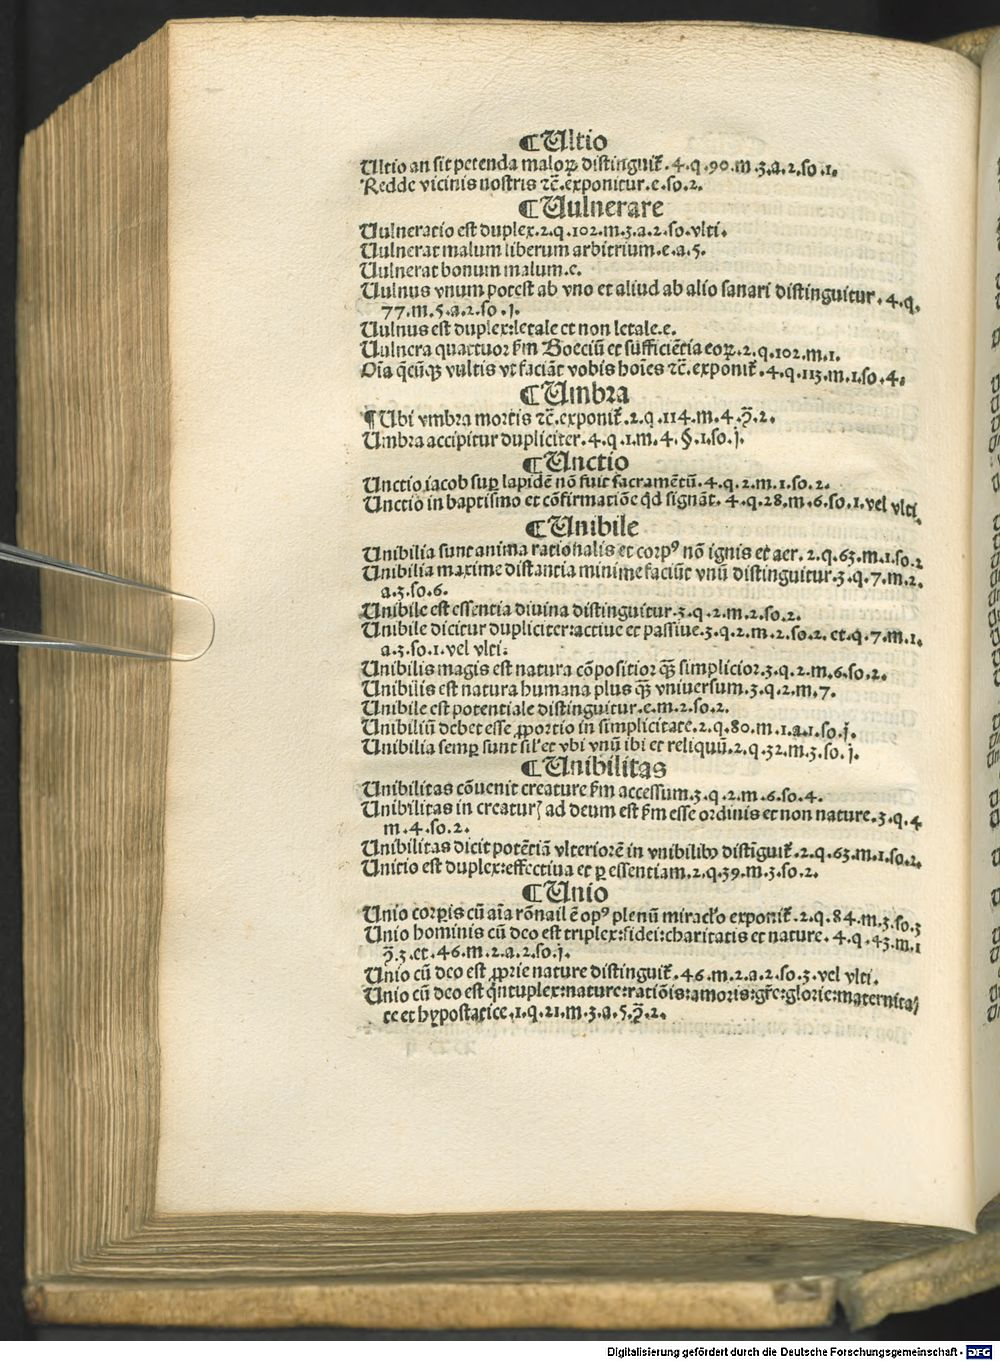 ¶Ultio
Ultio an sit petenda maloꝝ distinguit᷑.4.q.90.m.3.a.2.so.1.
Redde vicinis nostris ⁊c̃.exponitur.e.so.2.
¶Uulnerare
Uulneratio est duplex.2.q.102.m.3.a.2.so.vlti.
Uulnerat malum liberum arbitrium.e.a.5.
Uulnerat bonum malum.e.
Uulnus vnum potest ab vno et aliud ab alio sanari distinguitur.4.q.
77.m.5.a.2.so.j.
Uulnus est duplex:letale et non letale.e.
Uulnera quattuor ẜm Boeciũ et sufficiẽtia eoꝝ.2.q.102.m.1.
Oĩa q̃cũqꝫ vultis vt faciãt vobis hoĩes ⁊c̃.exponit᷑.4.q.113.m.1.so.4.
¶Umbra
¶Ubi vmbra mortis ⁊c̃.exponit᷑.2.q.114.m.4.q̃.2.
Umbra accipitur dupliciter.4.q.1.m.4.§.1.so.j.
¶Unctio
Unctio iacob suꝑ lapidẽ nõ fuit sacramẽtũ.4.q.2.m.1.so.2.
Unctio in baptismo et cõfirmatiõe qd̃ signãt.4.q.28.m.6.so.1.vel vlti.
¶Unibile
Unibilia sunt anima rationalis et corpꝰ nõ ignis et aer.2.q.63.m.1.so.2
Unibilia maxime distantia minime faciũt vnũ distinguitur.3.q.7.m.2.
a.3.so.6.
Unibile est essentia divina distinguitur.3.q.2.m.2.so.2.
Unibile dicitur dupliciter:actiue et passiue.3.q.2.m.2.so.2. et.q.7.m.1.
a.3.so.1.vel vlti.
Unibilis magis est natura cõpositior q̃ꝫ simplicior.3.q.2.m.6.so.2.
Unibilis est natura humana plus q̃ꝫ vniuersum.3.q.2.m.7.
Unibile est potentiale distinguitur.e.m.2.so.2.
Unibiliũ debet esse ꝓportio in simplicitate.2.q.80.m.1.a.1.so.j.
Unibilia semꝑ sunt sil̓ et vbi vnũ ibi et reliquũ.2.q.32.m.3.so.j.
¶Unibilitas
Unibilitas cõuenit creature ẜm accessum.3.q.2.m.6.so.4.
Unibilitas in creaturꝭ ad deum est ẜm esse ordinis et non nature.3.q.4
m.4.so.2.
Unibilitas dicit potẽtiã vlteriorẽ in vnibilibꝰ distĩguit᷑.2.q.63.m.1.so.2.
Unitio est duplex:effectiua et ꝑ essentiam.2.q.39.m.3.so.2.
¶Unio
Unio corꝑis cũ aĩa rõnali ẽ opꝰ plenũ miracl̓o exponit᷑.2.q.84.m.3.so.3
Unio hominis cũ deo est triplex:fidei:charitatis et nature. 4.q.43.m.1
q̃.3.et.46.m.2.a.2.so.j.
Unio cũ deo est ꝓprie nature distinguit᷑.46.m.2.a.2.so.3.vel vlti.
Unio cũ deo est q̃ntuplex:nature:ratiõis:amoris:gr̃e:glorie:maternita⸗
te et hypostatice.1.q.21.m.3.a.5.q̃.2.
Digitalisierung gefördert durch die Deutsche Forschungsgemeinschaft - DFG